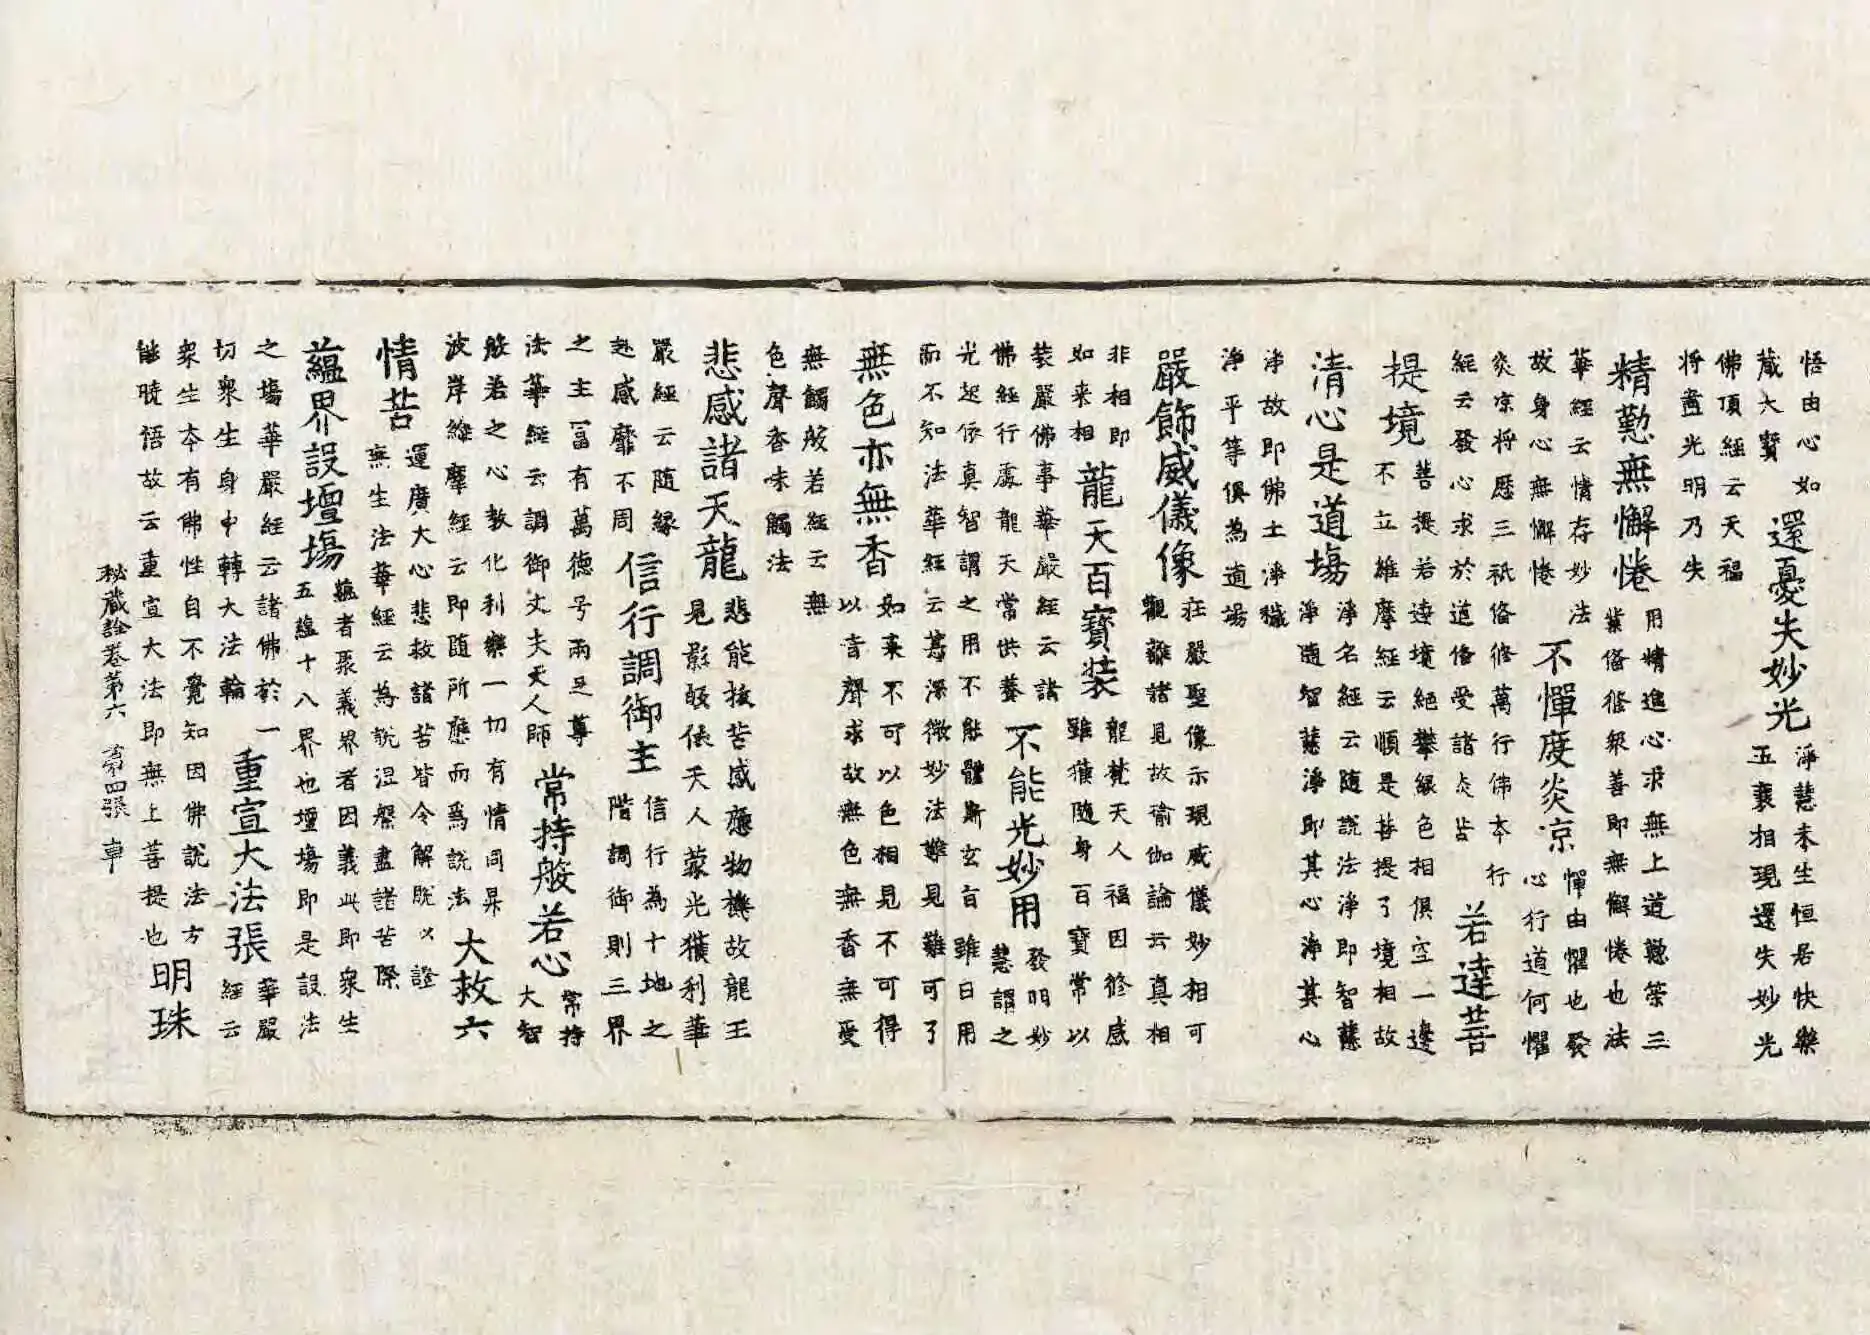 悟由心如
藏大寶
還憂失妙光
淨慧未生恒居快樂
五衰相現還失妙光
佛頂經云天福
將盡光明乃失
精懃無懈惓
用精進心求無上道懃策三
業俻修衆善即無懈惓也法
華經云情存妙法
故身心無懈惓
不憚度炎凉
憚由懼也發
心行道何懼
炎凉將歷三祇俻修萬行佛本行
經云發心求於道俻受諸炎苦
若達菩
提境
菩提若達境絕攀緣色相俱空一邊
不立維摩經云順是菩提了境相故
清心是道場
淨名經云隨說法淨即智慧
淨隨智慧淨即其心淨其心
淨故即佛土淨穢
淨平等俱為道場
嚴飾威儀像
莊嚴聖像示現威儀妙相可
觀離諸見故瑜伽論云真相
非相即
如来相
龍天百寶裝
龍梵天人福因修感
雖獲隨身百寶常以
裝嚴佛事華嚴經云諸
佛經行處龍天常供養
不能光妙用
發明妙
慧謂之
光起依真智謂之用不能體斯玄旨雖日用
而不知法華經云甚深微妙法難見難可了
無色亦無香
如来不可以色相見不可得
以音聲求故無色無香無受
無觸般若經云無
色聲香味觸法
悲感諸天龍
悲能拔苦感應物機故龍王
見影皈依天人蒙光獲利華
嚴經云隨縁
赴感靡不周
信行調御主
信行為十地之
階調御則三界
之主富有萬德号兩足尊
法華經云調御丈夫天人師
常持般若心
常持
大智
般若之心教化利樂一切有情同昇
波岸維摩經云即隨所應而為說法
大救六
情苦
運廣大心悲救諸苦皆令解脫以證
無生法華經云為說涅槃盡諸苦際
蘊界設壇場
蘊者聚義界者因義此即衆生
五蘊十八界也壇場即是設法
之場華嚴經云諸佛於一
切衆生身中轉大法輪
重宣大法張
華嚴
經云
衆生本有佛性自不覺知因佛說法方
能曉悟故云重宣大法即無上菩提也
明珠
秘藏詮卷第六 第四張 車